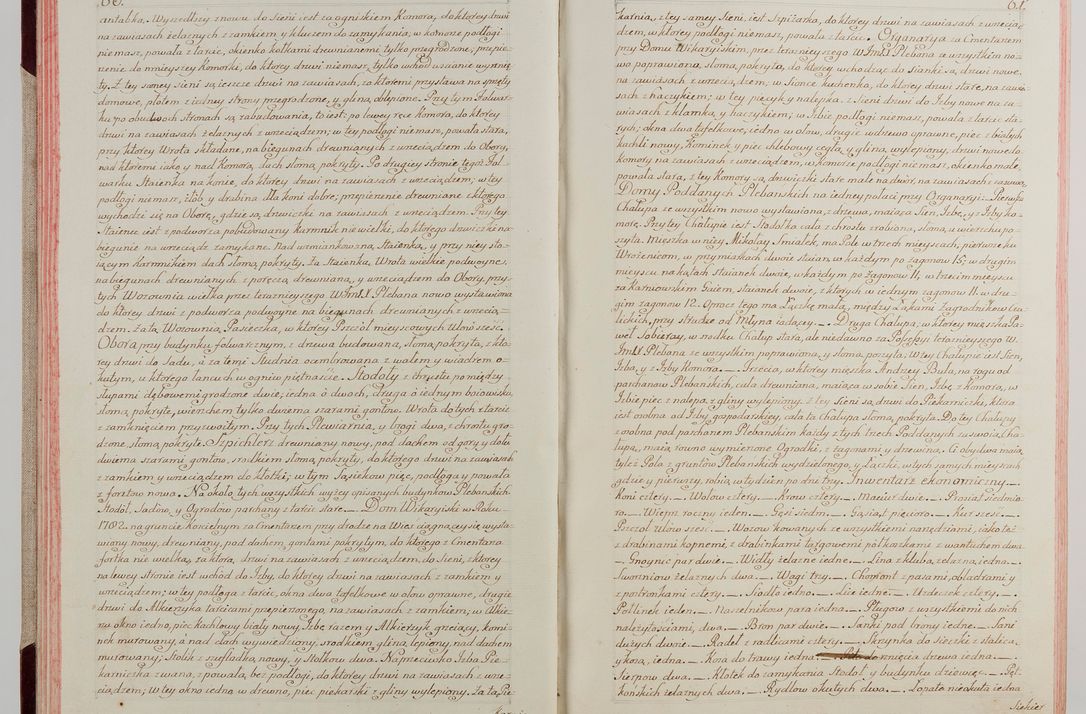 60.
antabka. Wyszedłszy znowu do Sieni iest za ogniskiem Komora, do ktorey drzwi
na zawiasach żelaznych z zamkiem y kluczem do zamykania, w komorze podłogi
niemasz, powała z tarcic, okienko kołkami drewnianemi tylko przegrodzone, przepie-
rzenie do mnieyszey Komorki, do ktorey drzwi niemasz, tylko wchod w ścianie wyrznię-
ty. Z tey samey Sieni są ieszcze drzwi na zawiasach, za ktoremi przystawa na sprzęty
domowe, płotem z iedney strony przegrodzone, y gliną oblepione. Przy tym Folwar-
ku po obudwoch Stronach są zabudowania, to iest: po lewey ręce Komora, do ktorey
drzwi na zawiasach żelaznych z wrzeciądzem; w tey podłogi niemasz, powała stara,
przy ktorey Wrota składane, na biegunach drewnianych z wrzeciądzem do Obory,
nad ktoremi iako y nad Komorą, dach słomą pokryty. Po drugiey stronie tegoż Fol-
warku Staienka na konie, do ktorey drzwi na zawiasach z wrzeciądzem; w tey
podłogi niemasz, żłób y drabina dla koni dobre; przepierzenie drewniane z ktorego
wychodzi się na Oborę, gdzie są drzwiczki na zawiasach z wrzeciądzem. Przy tey
Staience iest z podworza pobudowany Karmnik niewielki, do ktorego drzwiczki na
biegunie na wrzeciądz zamykane. Nad wzmiankowaną Staienką, y przy niey sto-
iącym Karmnikiem dach słomą pokryty. Za Staienką Wrota wielkie podwoyne,
na biegunach drewnianych z poręczą drewnianą, y wrzeciądzem do Obory, przy
tych Wozownia wielka przez teraznieyszego WJmX. Plebana nowo wystawiona
do ktorey drzwi z podworza podwoyne na biegunach drewnianych z wrzecią-
dzem. Za tą Wozownią Pasieczka, w ktorey Pszczoł mieyscowych Ulow sześć.
Obora przy budynku folwarcznym, z drzewa budowana, słomą pokryta, z kto-
rey drzwi do Sadu, a za temi Studnia ocembrowana z wałem y wiadrem o-
kutym, u ktorego łancuch w ogniw piętnaście. Stodoły z chrustu pomiędzy
słupami dębowemi grodzone dwie, iedna o dwoch, druga o iednym boiowisku,
słomą pokryte, wierzchem tylko dwiema szarami gontow. Wrota do tych z tarcic
z zamknięciem przyzwoitym. Przy tych Plewiarnia, y brogi dwa, z chrostu gro-
dzone, słomą pokryte. Szpichlerz drewniany nowy, pod dachem od gory y dołu
dwiema szarami gontow, środkiem słomą pokryty, do ktorego drzwi na zawiasach
z zamkiem y wrzeciądzem do kłotki; w tym Sąsiekow pięć, podłoga y powała
z forztow nowa. Na około tych wszystkich wyżey opisanych budynkow Plebańskich
Stodoł, Sadow, y Ogrodow parkany z tarcic stare. Dom Wikaryiski w Roku
1782. na gruncie kościelnym za Cmentarzem przy drodze na Wieś ciągnącey się wysta-
wiony nowy, drewniany, pod dachem gontami pokrytym, do ktorego z Cmentarza
fortka nie wielka, za ktorą drzwi na zawiasach z wrzeciądzem, do Sieni, z ktorey
na lewey stronie iest wchód do Izby, do ktorey drzwi na zawiasach z zamkiem y
wrzeciądzem; w tey podłoga z tarcic, okna dwa tafelkowe w ołow oprawne, drugie
drzwi do Alkierzyka tarcicami przepierzonego, na zawiasach z zamkiem; w Alkie-
rzu okno iedno, piec kachlowy biały nowy, Izbę razem y Alkierzyk grzeiący, komi-
nek murowany, a nad dach wywiedziony, środkiem gliną lepiony, nad dachem
murowany; Stolik z szufladką nowy, y Stołkow dwa. Naprzeciwko Izba Pie-
karniczka zwana, z powałą, bez podłogi, do ktorey drzwi na zawiasach z wrze-
ciądzem, w tey okno iedno w drzewno, piec piekarski z gliny wylepiony. Za tą Pie-
61.
karnią, z tey samey Sieni, iest Szpiżarka, do ktorey drzwi na zawiasach z wrzecią-
dzem, w ktorey podłogi niemasz, powała z tarcic. Organarya za Cmentarzem
przy Domu Wikaryiskim, przez teraznieyszego WJmX. Plebana ze wszystkim no-
wo poprawiona, słomą pokryta, do ktorey wchodząc do Sianki są drzwi nowe.
na zawiasach z wrzeciądzem, w Sionce kuchenka, do ktorey drzwi stare, na zawia-
sach z haczykiem; w tey piecyk y nalepka. Z Sieni drzwi do Izby nowe na za-
wiasach z klamką y haczykiem; w Izbie podłogi niemasz, powała z tarcic sta-
rych; okna dwa tafelkowe, iedno w ołow, drugie w drzewo oprawne, piec z białych
kachli nowy, Kominek y piec chlebowy cegłą y gliną wylepiony, drzwi nowe do
komory na zawiasach z wrzeciądzem, w komorze podłogi niemasz, okienko małe,
powała stara, z tey Komory są drzwiczki stare małe na dwór, na zawiasach z zasuwką.
Domy Poddanych Plebańskich na iedney połaci przy Organaryi. Pierwsza
Chałupa ze wszystkim nowo wystawiona, z drzewa, maiąca Sień, Izbę, y z Izby ko-
morę. Przy tey Chałupie iest Stodołka cała z chrostu zrobiona, słomą u wierzchu po-
szyta. Mieszka w niey Mikołay Smiałek, ma Pole w trzech mieyscach, pierwsze ku
Wrożenicom, w przymiarkach dwoie staian, w każdym po zagonow 15; w drugim
mieyscu na kątach staianek dwoie, w każdym po zagonow 11; w trzecim mieyscu
za Karniowskim Gaiem, staianek dwoie, z ktorych w iednym zagonow 11. w dru-
gim zagonow 12. Oprocz tego ma Łączkę małą, między Łąkami Zagrodnikow Cu-
lickich, przy strudze od Młyna idącey. — . Druga Chałupa, w ktorey mieszka Pa-
weł Sobieray, w srodku Chałup stara, ale niedawno za Possessyi teraznieyszego W.
JmX. Plebana ze wszystkim poprawiona, y słomą poszyta. W tey Chałupie iest Sien,
Izba, y z Izby Komora. — . Trzecia, w ktorey mieszka Andrzey Buła, na rogu od
parchanow Plebanskich, cała drzewniana, maiąca w sobie Sien, Izbę, z Komorą, w
Izbie piec z nalepą z gliny wylepiony. z tey Sieni są drzwi do Piekarniczki, ktora
iest osobna od Izby gospodarskiey, cała ta Chałupa słomą pokryta. Do tey Chałupy
z osobna pod parchanem Plebanskim każdy z tych trzech Poddanych za swoią Cha-
łupą, maią rowno wymierzone Ogrodki, z zagonami y drzewiną. Ci obydwa maią
tyleż Pola z gruntow Plebanskich wydzielonego, y Łączki, w tych samych mieyscach
gdzie y pierwszy, robią w tydzien po dni trzy. Inwentarz ekonomiczny. —
Koni cztery. — Wołow cztery. — Krow cztery. — Macior dwie. — Prosiąt siedmio-
ro. — Wieprz roczny ieden. — Gęsi siedm. — Gąsiąt pięcioro. — Kur sześć. —
Pszczoł Ulow sześć. — Wozow kowanych ze wszystkiemi narzędziami, iako też
z drabinami kopnemi, z drabinkami targowemi półkoszkami z wantuchem dwa
— Gnoynic par dwie. — Widły żelazne iedne. — Lina z kluba, żelazna, iedna. —
Sworzniow żelaznych dwa. — Wagi trzy. — Chomont z pasami, obladrami y
z postronkami cztery. — Siodło iedno. — Lice iedne. — Uzdeczek cztery. —
Pottinek ieden. — Naszelnikow para iedna. — Pługow z wszystkiemi do nich
należytościami, dwa. — Bron par dwie. — Sanki pod brony iedne. — Sani
dużych dwoie. — Radeł z radlicami cztery. — Skrzynka do sieczki z stalicą,
y kosą, iedna. — Kosa do trawy iedna. — do rznięcia drzewa iedna. —
Sierpow dwa. — Kłotek do zamykania Stodoł y budynku dziewięć. — Pęt
końskich żelaznych dwa. — Rydlow okutych dwa. — Łopata nieokuta iedna
Siekier